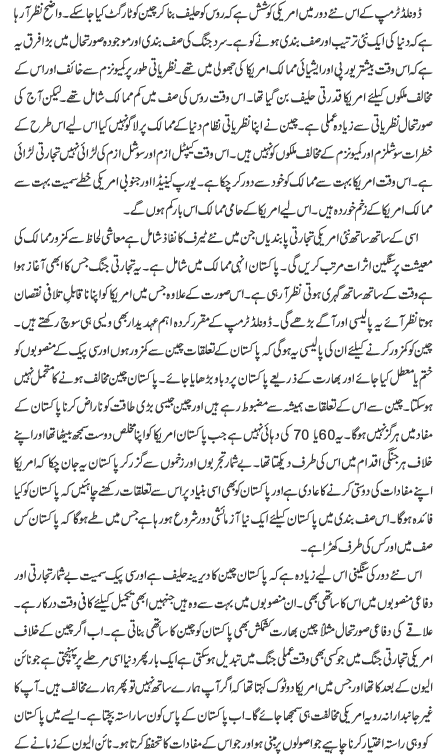 ڈونلڈ ٹرمپ کے اس نئے دور میں امریکی کوشش ہے کہ روس کو حلیف بنا کر چین کو ٹارگٹ کیا جاسکے۔ واضح نظر آرہا
ہے کہ دنیا کی ایک نئی ترتیب اور صف بندی ہونے کو ہے۔ سرد جنگ کی صف بندی اور موجودہ صورتحال میں بڑا فرق یہ
ہے کہ اس وقت بیشتر یورپی اور ایشیائی ممالک امریکا کی جھولی میں تھے۔ نظریاتی طور پر کمیونزم سے خائف اور اس کے
مخالف ملکوں کیلئے امریکا قدرتی حلیف بن گیا تھا۔ اس وقت روس کی صف میں کم ممالک شامل تھے۔ لیکن آج کی
صورتحال نظریاتی سے زیادہ عملی ہے۔ چین نے اپنا نظریاتی نظام دنیا کے ممالک پر لاگو نہیں کیا اس لیے اس طرح کے
خطرات سوشلزم اور کمیونزم کے مخالف ملکوں کو نہیں ہیں۔ اس وقت کیپٹل ازم اور سوشل ازم کی لڑائی نہیں تجارتی لڑائی
ہے۔ اس وقت امریکا بہت سے ممالک کو خود سے دور کرچکا ہے۔ یورپ کینیڈا اور جنوبی امریکی خطے سمیت بہت سے
ممالک امریکا کے زخم خوردہ ہیں۔ اس لیے امریکا کے حامی ممالک اس بار کم ہوں گے۔
اسی کے ساتھ ساتھ نئی امریکی تجارتی پابندیاں جن میں نئے ٹیرف کا نفاذ شامل ہے معاشی لحاظ سے کمزور ممالک کی
معیشت پر سنگین اثرات مرتب کریں گی۔ پاکستان انہی ممالک میں شامل ہے۔ یہ تجارتی جنگ جس کا ابھی آغاز ہوا
ہے وقت کے ساتھ ساتھ گہری ہوتی نظر آرہی ہے۔ اس صورت کے علاوہ جس میں امریکا کو اپنا ناقابل تلافی نقصان
ہوتا نظر آئے یہ پالیسی اور آگے بڑھے گی۔ ڈونلڈ ٹرمپ کے مقرر کردہ اہم عہدیدار بھی ویسی ہی سوچ رکھتے ہیں۔
چین کو کمزور کرنے کیلئے ان کی پالیسی یہ ہوگی کہ پاکستان کے تعلقات چین سے کمزور ہوں اور سی پیک کے منصوبوں کو
ختم یا معطل کیا جائے اور بھارت کے ذریعے پاکستان پر دباؤ بڑھایا جائے۔ پاکستان چین مخالف ہونے کا متحمل نہیں
ہوسکتا۔ چین سے اس کے تعلقات ہمیشہ سے مضبوط رہے ہیں اور چین جیسی بڑی طاقت کو ناراض کرنا پاکستان کے
مفاد میں ہرگز نہیں ہوگا۔ یہ 60 یا 70 کی دہائی نہیں ہے جب پاکستان امریکا کو اپنا مخلص دوست سمجھ بیٹھا تھا اور اپنے
خلاف ہر جنگی اقدام میں اس کی طرف دیکھتا تھا۔ بے شمار تجربوں اور زخموں سے گزر کر پاکستان یہ جان چکا کہ امریکا
اپنے مفادات کی دوستی کرنے کا عادی ہے اور پاکستان کو بھی اسی بنیاد پر اس سے تعلقات رکھنے چاہئیں کہ پاکستان کو کیا
فائدہ ہوگا۔ اس صف بندی میں پاکستان کیلئے ایک نیا آزمائشی دور شروع ہورہا ہے جس میں طے ہوگا کہ پاکستان کس
صف میں اور کس کی طرف کھڑا ہے۔
اس نئے دور کی سنگینی اس لیے زیادہ ہے کہ پاکستان چین کا دیرینہ حلیف ہے اور سی پیک سمیت بے شمار تجارتی اور
دفاعی منصوبوں میں اس کا ساتھی بھی۔ ان منصوبوں میں بہت سے وہ ہیں جنہیں ابھی تکمیل کیلئے کافی وقت درکار ہے۔
علاقے کی دفاعی صورتحال مثلاً چین بھارت کشمکش بھی پاکستان کو چین کا ساتھی بناتی ہے۔ اب اگر چین کے خلاف
امریکی تجارتی جنگ میں جو کسی بھی وقت عملی جنگ میں تبدیل ہوسکتی ہے ایک بار پھر دنیا اسی مرحلے پر پہنچتی ہے جو نائن
الیون کے بعد کا تھا اور جس میں امریکا دوٹوک کہتا تھا کہ اگر آپ ہمارے ساتھ نہیں تو پھر ہمارے مخالف ہیں۔ آپ کا
غیر جانبدارانہ رویہ امریکی مخالفت ہی سمجھا جائے گا۔ اب پاکستان کے پاس کون سا راستہ بچتا ہے۔ ایسے میں پاکستان
کو وہی راستہ اختیار کرنا چاہیے جو اصولوں پر مبنی ہو اور جو اس کے مفادات کا تحفظ کرتا ہو۔ نائن الیون کے زمانے کے